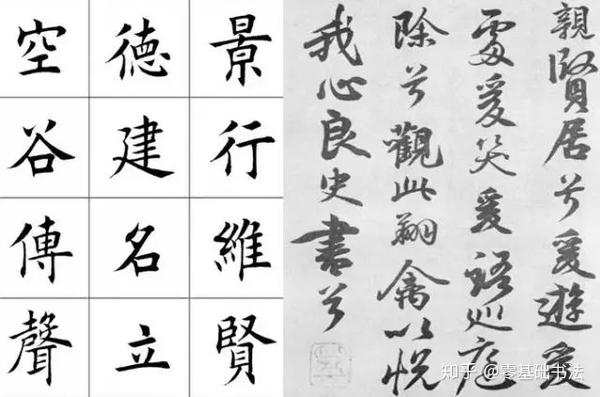 景行維賢
德建名立
空谷傳聲
親賢居兮爰遊爰
處爰笑爰語巡庭
除兮觀此翔禽以悅
我心良史書兮
知乎 @零基础书法